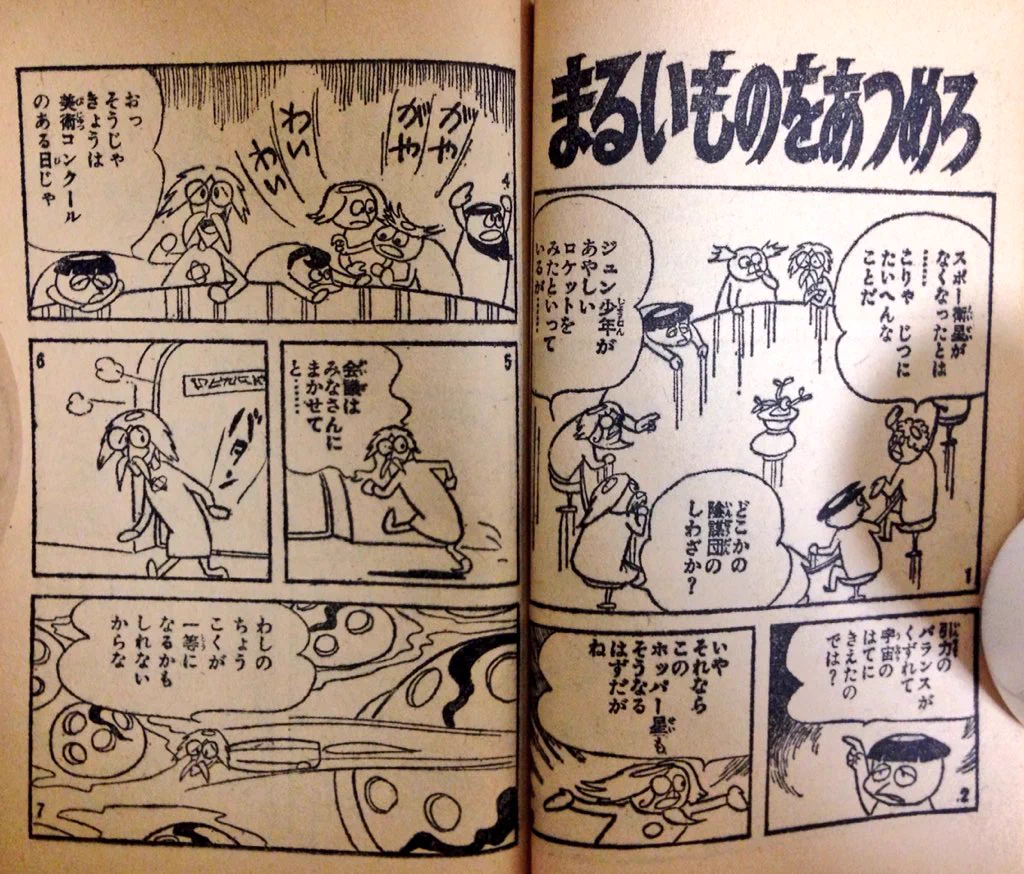 まるいものをあつめろ
スポー衛星が
なくなったとは
……
こりゃ じつに
たいへんな
ことだ
ジュン少年が
あやしい
ロケットを
みたといって
いるが……
どこかの
陰謀団の
しわざか?
1
引力の
バランスが
くずれて
宇宙の
はてに
きえたの
では?
2
いや
それなら
この
ホッパー星も
そうなる
はずだが
ね
ガヤ
ガヤ
わい
わい
4
おっ
そうじゃ
きょうは
美術コンクール
のある日じゃ
会議は
みなさんに
まかせて
と……
5
バタン
6
わしの
ちょう
こくが
一等に
なるかも
しれない
からな
7